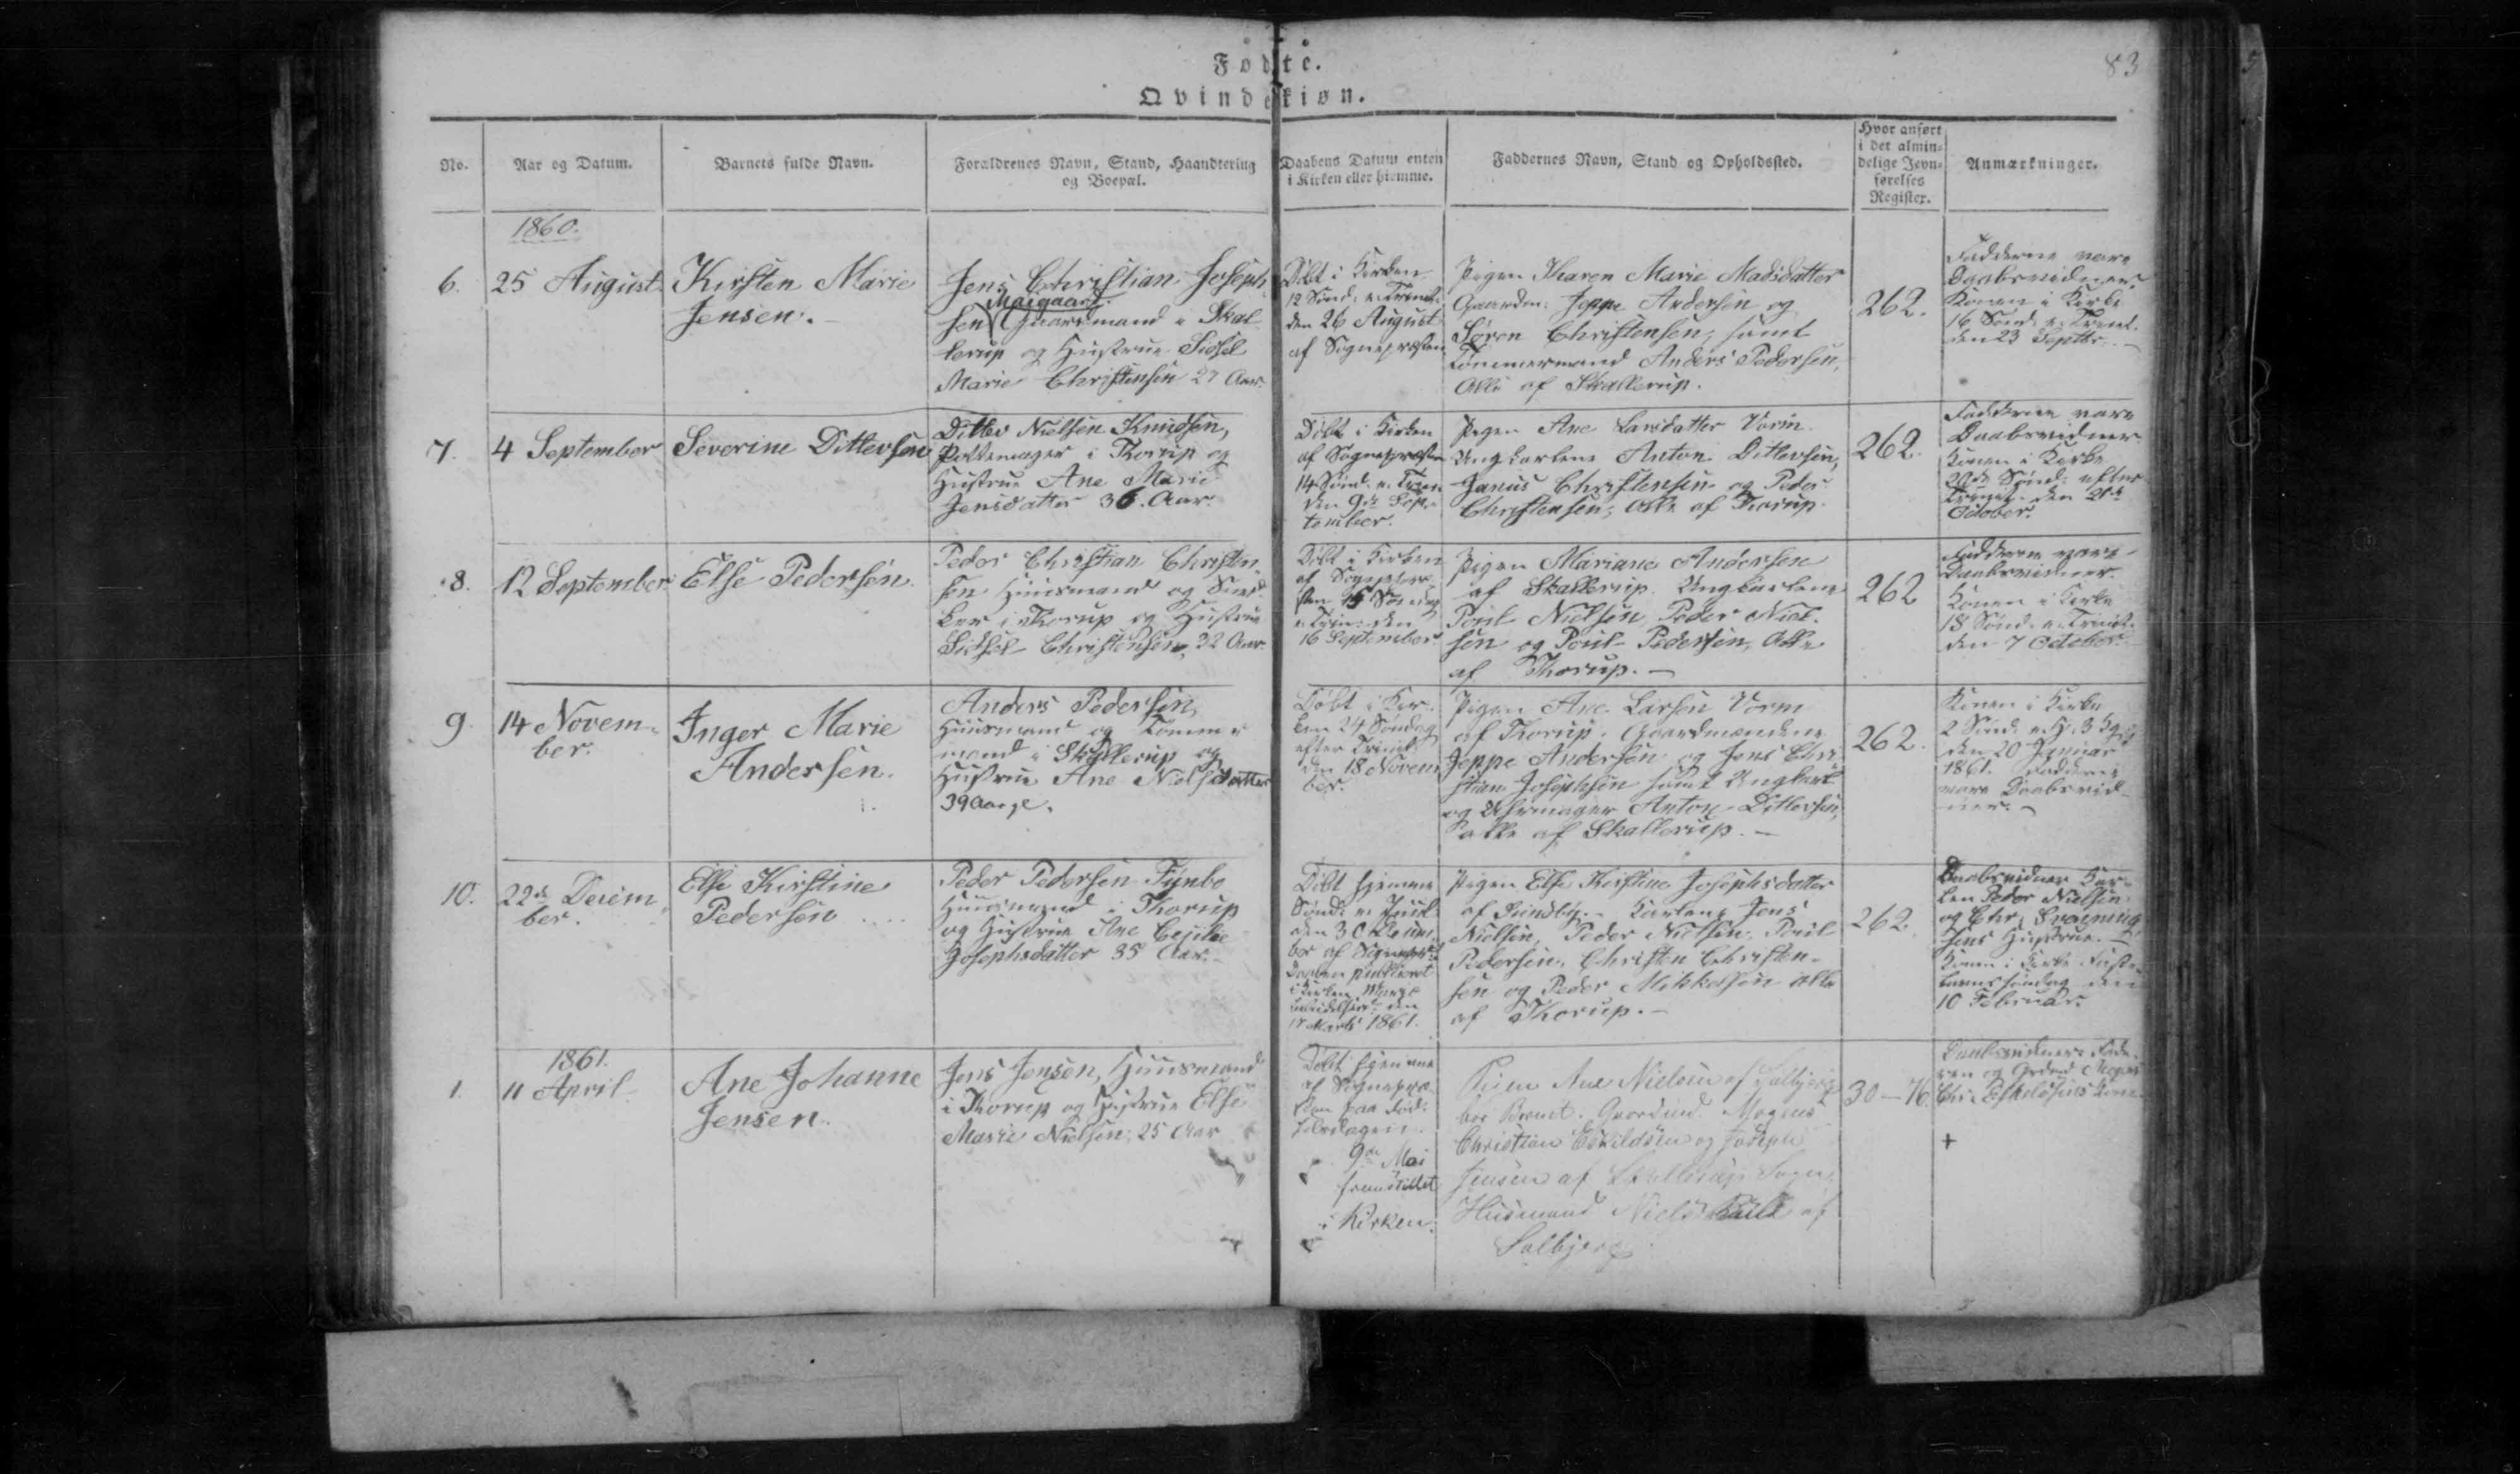 Fødte.
83
Qvindekiøn.
No.
Aar og Datum.
Barnets fulde Navn.
Forældrenes Navn, Stand, Haandtering
og Boepæl.
Daabens Datum enten
i Kirken eller hiemme.
Faddernes Navn, Stand og Opholdssted.
Hvor anført
i det almin-
delige Jevn-
førelses
Register.
Anmærkninger.
1860.
6.
25 August.
Kirsten Marie
Jensen.
Jens Christian Joseph
Maigaard.
sen Gaardmand i Skal-
lerup og Hustrue Sidsel
Marie Christensen 27 Aar.
Døbt i Kirken
12 Sønd: e. Trinit:
den 26 August
af Sognepræsten
Pigen Karen Marie Madsdatter
Gaardm: Jeppe Andersen og
Søren Christensen, samt
Tømmermand Anders Pedersen,
Alle af Skallerup.
262.
Fadderne vare
Daabsvidner.
Konen i Kirke
16 Sønd. e. Trinit.
den 23 Septbr.
7.
4 September
Severine Ditlevsen
Ditlev Nielsen Knudsen,
Pottemager i Thorup og
Hustrue Ane Marie
Jensdatter 36. Aar.
Døbt i Kirken
af Sognepræsten
14 Sønd. e. Trin
den 9de Sep-
tember.
Pigen Ane Larsdatter Vorm
Ungkarlene Anton Ditlevsen,
Janus Christensen og Peder
Christensen, Alle af Thorup.
262.
Fadderne vare
Daabsvidner
Konen i Kirke
20de Sønd. efter
Trinit. den 21de
October.
8.
12 September
Else Pedersen.
Peder Christian Christen-
sen Huusmand og
i Thorup og Hustrue
Sidsel Christensen, 22 Aar.
Døbt i Kirken
af Sognepræ-
sten 15 Søndag
e. Trin: den
16 September
Pigen Mariane Andersen
af Skallerup. Ungkarlene
Poul Nielsen, Peder Niel-
sen og Poul Pedersen, Alle
af Thorup.
262
Fadderne vare
Daabsvidner.
Konen i Kirke
18 Sønd. e. Trinit.
den 7 October.
9.
14 Novem-
ber.
Inger Marie
Andersen.
Anders Pedersen,
Huusmand og Tømmer
mand i Skallerup og
Hustrue Ane Nielsdatter
39 Aar gl.
Døbt i Kir-
ken 24 Søndag
efter Trinit.
den 18 Novem
ber.
Pigen Ane Larsen Vorm
af Thorup. Gaardmændene
Jeppe Andersen og Jens Chri
stian Josephsen samt Ungkarl
og Uhrmager Anton Ditlevsen,
alle af Skallerup.
262.
Konen i Kirke
2 Sønd. e. H. 3 Kg.
den 20 Januar
1861. Fadderne
vare Daabsvid-
ner.
10.
22de Decem
ber.
Else Kirstine
Pedersen
Peder Pedersen Fynbo
Huusmand i Thorup
og Hustrue Ane Cecilie
Josephsdatter 35 Aar.
Døbt hjemme
Sønd. e. Juul
den 30 Decem
ber af Sognepr:
Daaben publiceret
i Kirken Mariæ
Bebudelsesd. den
17 Marts 1861.
Pigen Else Kirstine Josephsdatter
af Sundby. Karlene Jens
Nielsen, Peder Nielsen, Poul
Pedersen, Christen Christen-
sen og Peder Mikkelsen alle
af Thorup.
262.
Daabsvidner Kar-
len Peder Nielsen
og Chr. Svenning-
sens Hustrue.
Konen i Kirke Faste-
lavns Søndag den
10 Februar.
1.
1861.
11 April
Ane Johanne
Jensen.
Jens Jensen, Huusmand
i Thorup og Hustrue Else
Marie Nielsen, 25 Aar
Døbt hjemme
af Sognepræ
sten paa Fød-
selsdagen.
9de Mai
fremstillet
i Kirken.
Pigen Ane Nielsen af Solbjerg
bar Barnet. Gaardmd. Mogens
Christian Eskildsen og Joseph
Jensen af Skallerup Sogn,
Husmand Niels af
Solbjerg
30-76.
Daabsvidner: Fade-
ren og Grdmd. Mogens
Chr. Eskildsens Kone.
+